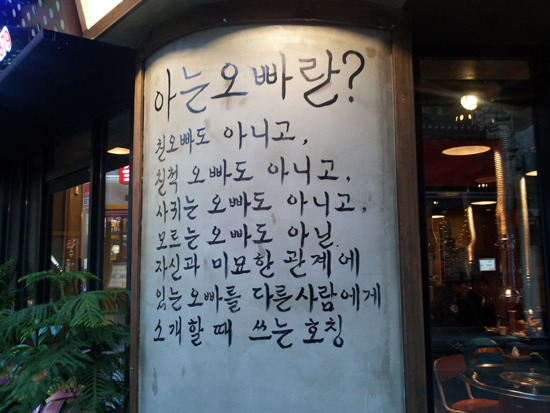 아는오빠란?
친오빠도 아니고,
친척 오빠도 아니고,
사귀는 오빠도 아니고,
모르는 오빠도 아닐
자신과 미묘한 관계에
있는 오빠를 다른사람에게
소개할 때 쓰는 호칭